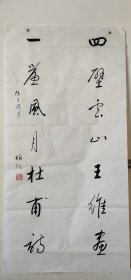 四壁云山王维画
一帘风月杜甫诗